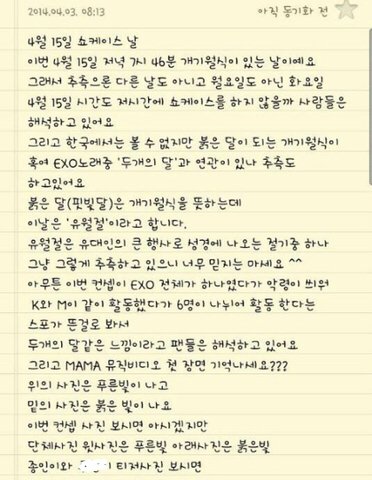 2014.04.03. 08:13
아직 동기화 전
4월 15일 쇼케이스 날
이번 4월 15일 저녁 7시 46분 개기월식이 있는 날이에요
그래서 추측으론 다른 날도 아니고 월요일도 아닌 화요일
4월 15일 시간도 저시간에 쇼케이스를 하지 않을까 사람들은
해석하고 있어요
그리고 한국에서는 볼 수 없지만 붉은 달이 되는 개기월식이
혹여 EXO노래중 '두개의 달'과 연관이 있나 추측도
하고있어요
붉은 달(핏빛달)은 개기월식을 뜻하는데
이날은 '유월절'이라고 합니다.
유월절은 유대인의 큰 행사로 성경에 나오는 절기중 하나
그냥 그렇게 추측하고 있으니 너무 믿지는 마세요 ^^
아무튼 이번 컨셉이 EXO 전체가 하나였다가 악령이 씌워
K와 M이 같이 활동했다가 6명이 나뉘어 활동 한다는
스포가 뜬걸로 봐서
두개의 달같은 느낌이라고 팬들은 해석하고 있어요
그리고 MAMA 뮤직비디오 첫 장면 기억나세요???
위의 사진은 푸른빛이 나고
밑의 사진은 붉은 빛이 나요
이번 컨셉 사진 보시면 아시겠지만
단체사진 윗사진은 푸른빛 아래사진은 붉은빛
종인이와 티저사진 보시면